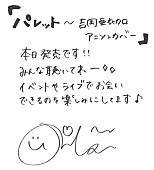 「パレット～吉岡亜衣加
アニソンカバー」
本日発売です!!
みんな聴いてれーゥゥ
イベントやライブでお会い
できるのを楽しみにしてます♪